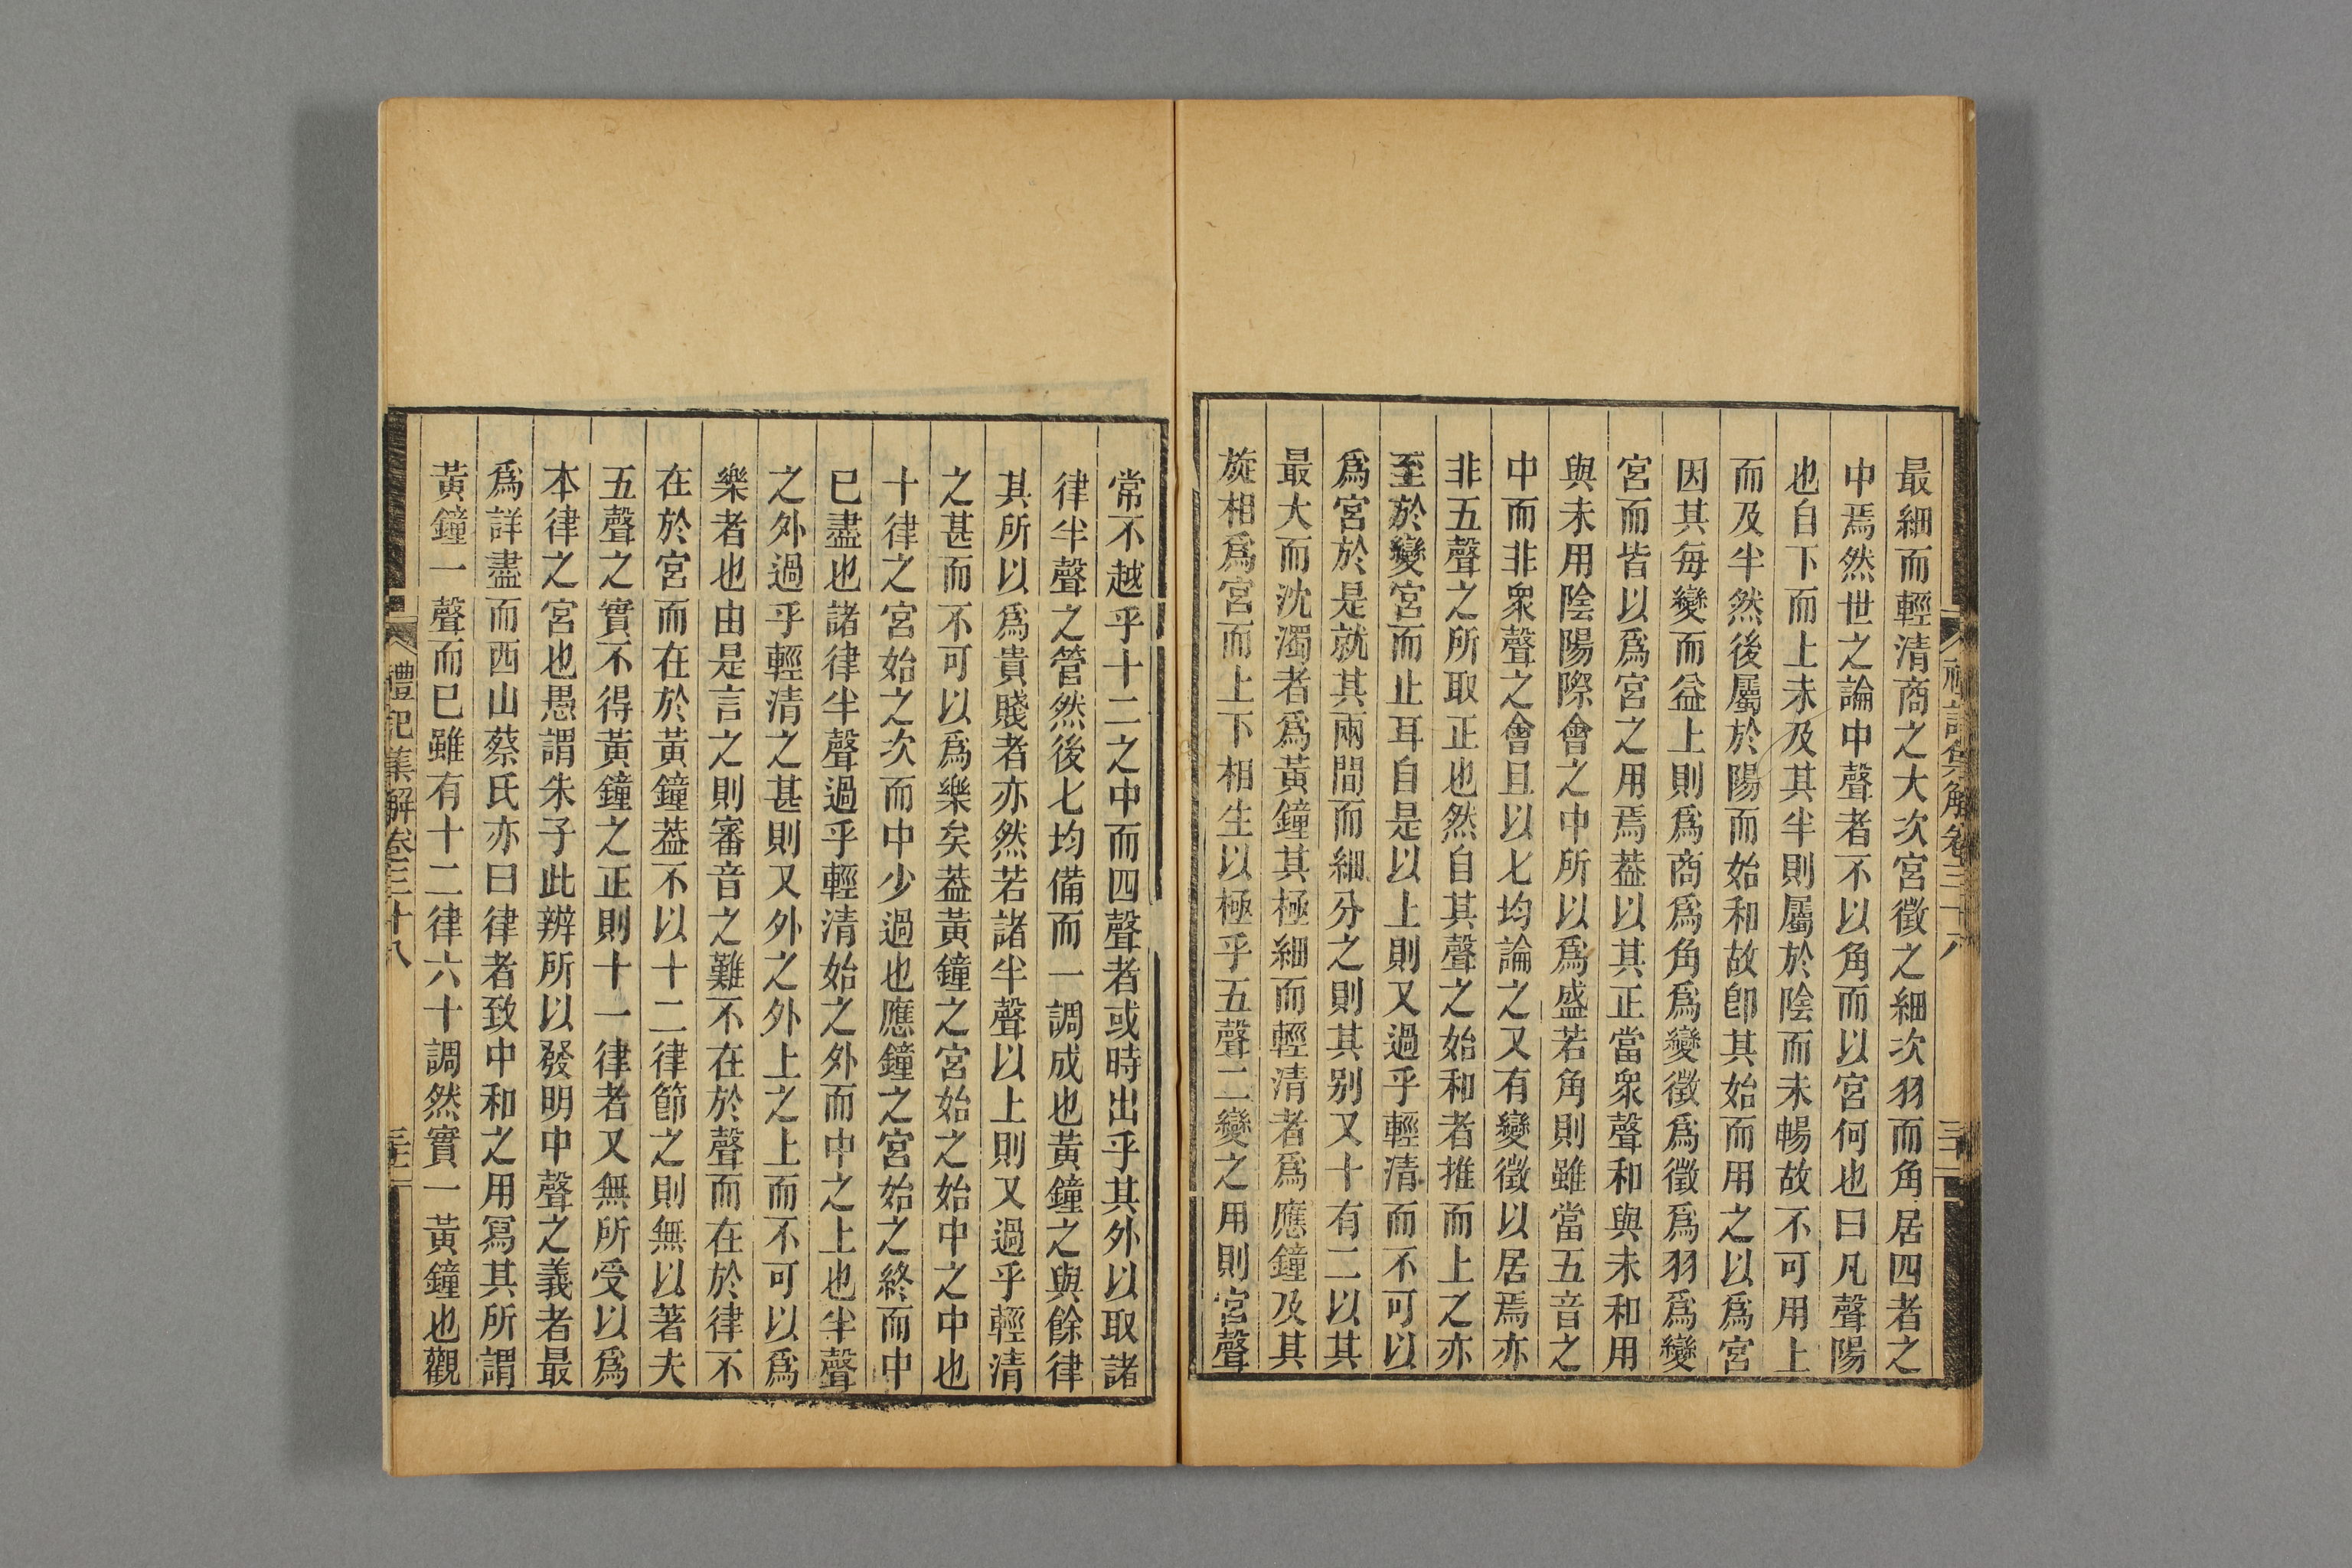 最細而輕清商之大次宮徵之細次羽而角居四者之
中焉然世之論中聲者不以角而以宮何也曰凡聲陽
也自下而上未及其半則屬於陰而未暢故不可用上
而及半然後屬於陽而始和故卽其始而用之以爲宮
因其每變而益上則爲商爲角爲變徵爲徵爲羽爲變
宮而皆以爲宮之用焉葢以其正當衆聲和與未和用
與未用陰陽際會之中所以爲盛若角則雖當五音之
中而非衆聲之會且以七均論之又有變徵以居焉亦
非五聲之所取正也然自其聲之始和者推而上之亦
至於變宮而止耳自是以上則又過乎輕清而不可以
爲宮於是就其兩間而細分之則其别又十有二以其
最大而沈濁者爲黃鐘其極細而輕清者爲應鐘及其
旋相爲宮而上下相生以極乎五聲二變之用則宮聲
常不越乎十二之中而四聲者或時出乎其外以取諸
律半聲之管然後七均備而一調成也黃鐘之與餘律
其所以爲貴賤者亦然若諸半聲以上則又過乎輕清
之甚而不可以爲樂矣葢黃鐘之宮始之始中之中也
十律之宮始之次而中少過也應鐘之宮始之終而中
已盡也諸律半聲過乎輕清始之外而中之上也半聲
之外過乎輕清之甚則又外之外上之上而不可以爲
樂者也由是言之則審音之難不在於聲而在於律不
在於宮而在於黃鐘葢不以十二律節之則無以著夫
五聲之實不得黃鐘之正則十一律者又無所受以爲
本律之宮也愚謂朱子此辨所以發明中聲之義者最
爲詳盡而西山蔡氏亦曰律者致中和之用寫其所謂
黃鐘一聲而已雖有十二律六十調然實一黃鐘也觀
禮記集解卷三十八